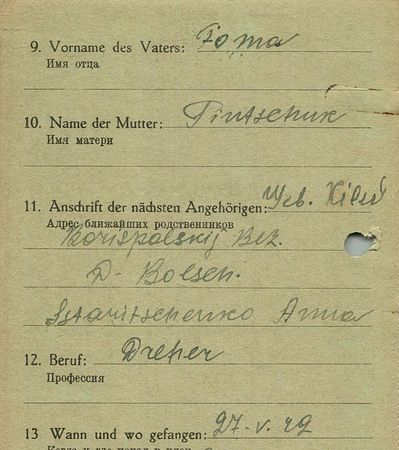 9. Vorname des Vaters: Foma
Имя отца
10. Name der Mutter: Pintschuk
Имя матери
11. Anschrift der nächsten Angehörigen: Geb. Kiew
Адрес ближайших родственников
Borispolskij Bez.
D- Bolsch.
Staritschenko Anna
12. Beruf: Dreher
Профессия
13 Wann und wo gefangen: 27. V. 42